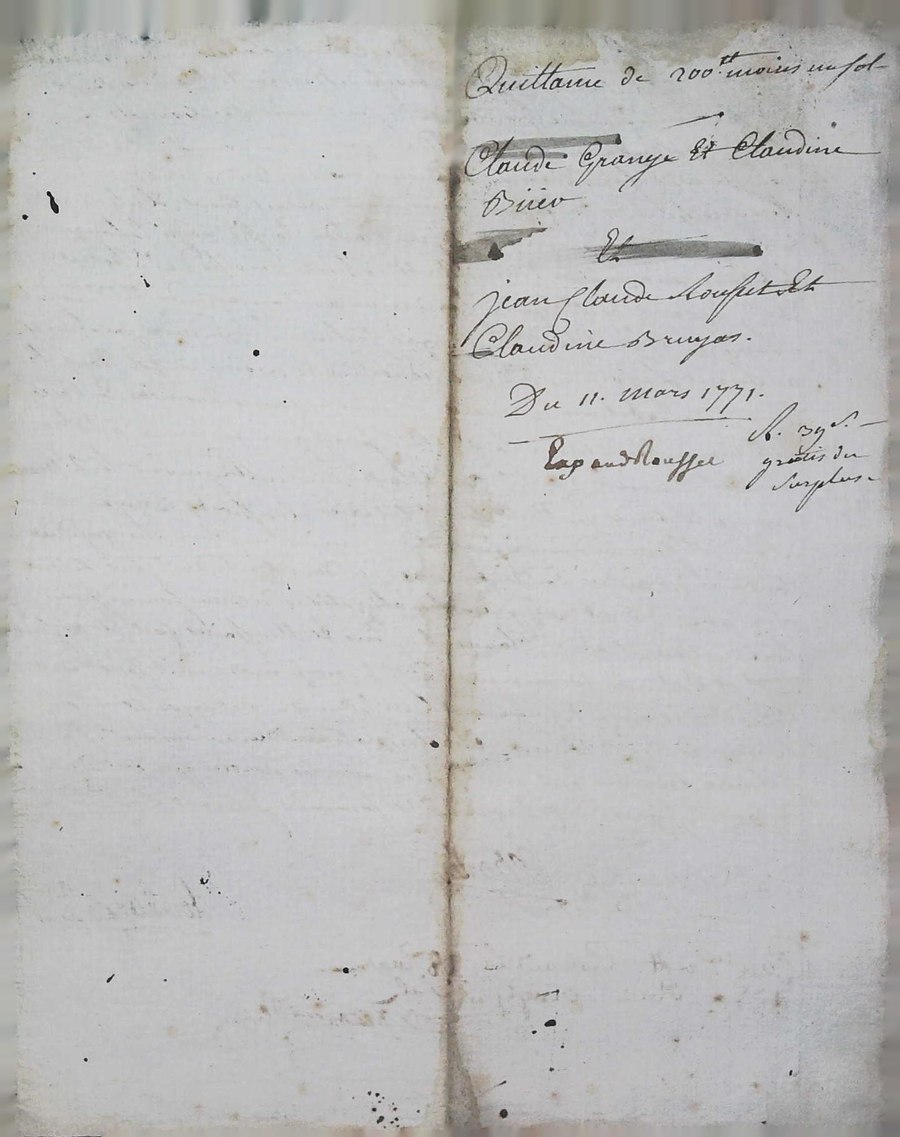 Quittance de 200.tt moins un sol
Claude Grange Et Claudine
Et
jean Claude Rousset Et
Claudine Bruyas.
Du 11. mars 1771.
R. 39 s.
gratis du
surplus.